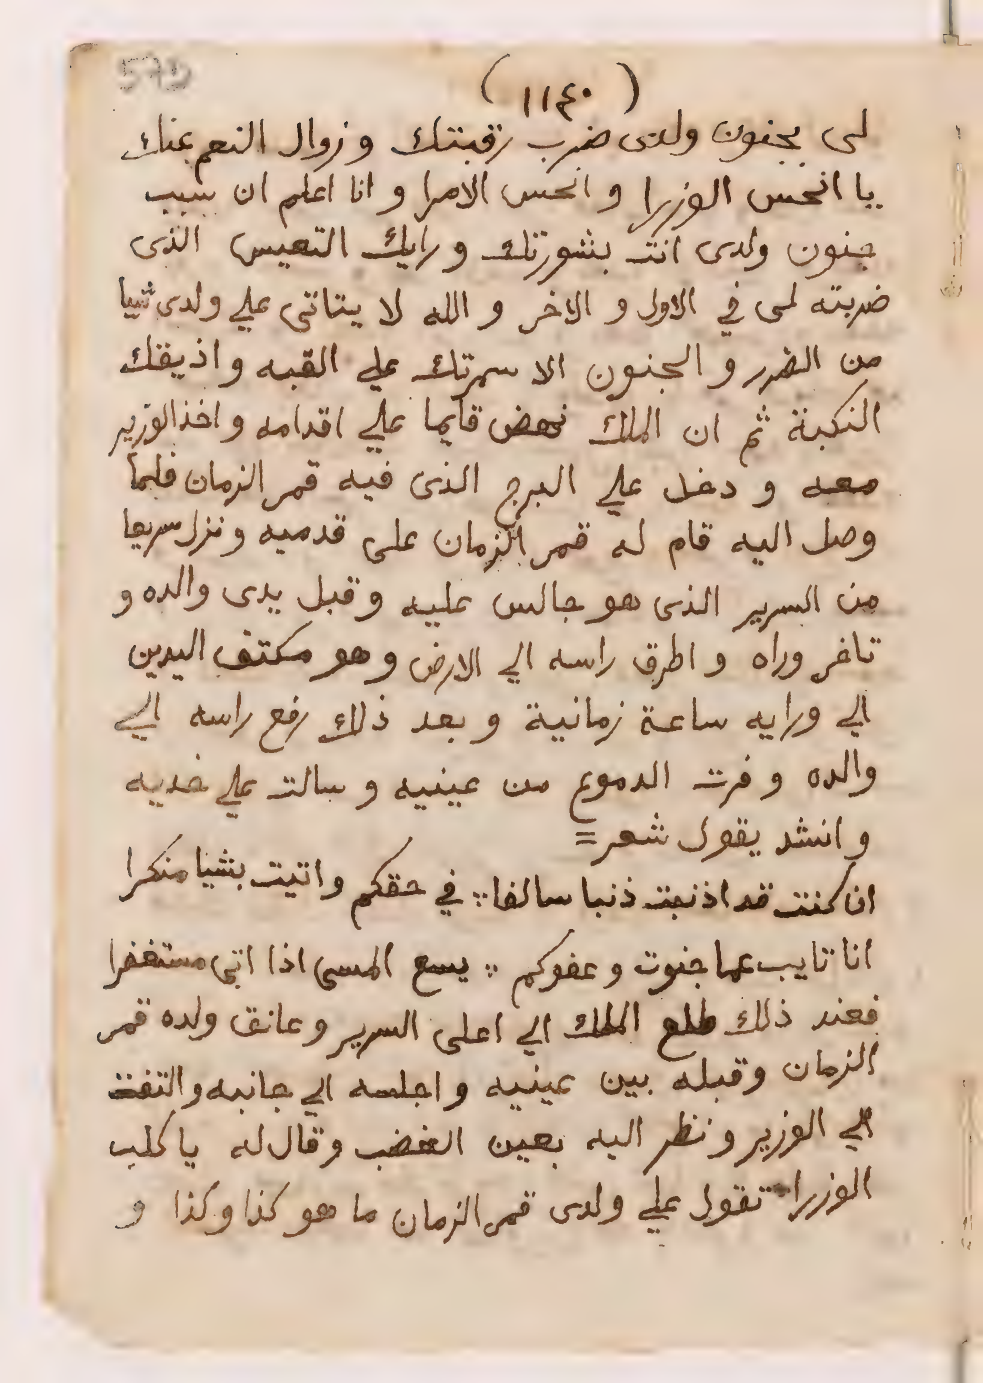 575
(١١٤٠)
لى بجنون ولدى ضرب رقبتك و زوال النعم عنك
يا انحس الوزرا و انحس الامرا و انا اعلم ان سبب
جنون ولدى انت بشورتك و رايك التعيس الذى
ضربته لى في الاول و الاخر و الله لا يتاتى علي ولدى شيا
من الضرر و الجنون الا سمرتك علي القبه و اذيقك
النكبة ثم ان الملك نهض قايما علي اقدامه و اخذ الوزير
معه و دخل علي البرج الذى فيه قمر الزمان فلما
وصل اليه قام له قمر الزمان على قدميه و نزل سريعا
من السرير الذى هو جالس عليه و قبل يدى والده و
تاخر وراه و اطرق راسه الي الارض و هو مكتف اليدين
الي ورايه ساعة زمانية و بعد ذلك رفع راسه الي
والده و فرت الدموع من عينيه و سالت علي خديه
و انشد يقول شعر =
ان كنت قد اذنبت ذنبا سالفا ∴ في حقكم و اتيت بشيا منكرا
انا تايب عما جنوت و عفوكم ∴ يسع المسى اذا اتى مستغفرا
فعند ذلك طلع الملك الي اعلى السرير و عانق ولده قمر
الزمان و قبله بين عينيه و اجلسه الي جانبه و التفت
الي الوزير و نظر اليه بعين الغضب و قال له يا كلب
الوزرا تقول علي ولدى قمر الزمان ما هو كذا و كذا و